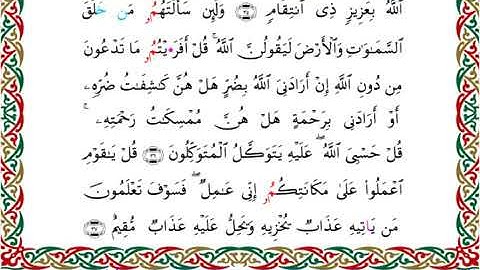 اَللَّهُ بِعَزِيزٖ ذِى اِنتِقَامٖ ۝ وَلَئِن سَأَلْتَهُمُۥ مَّنْ خَلَقَ
اَلسَّمَٰوَٰتِ وَالْأَرْضَ لَيَقُولُنَّ اَللَّهُ ۚ قُلْ أَفَرَٰيْتُمُۥ مَا تَدْعُونَ
مِن دُونِ اِللَّهِ إِنْ أَرَادَنِىَ اَللَّهُ بِضُرٍّ هَلْ هُنَّ كَٰشِفَٰتُ ضُرِّهِۦ
أَوْ أَرَادَنِى بِرَحْمَةٍ هَلْ هُنَّ مُمْسِكَٰتُ رَحْمَتِهِۦ ۚ
قُلْ حَسْبِىَ اَللَّهُ ۖ عَلَيْهِ يَتَوَكَّلُ اُلْمُتَوَكِّلُونَ ۝ قُلْ يَٰقَوْمِ
اِعْمَلُوا۟ عَلَىٰ مَكَانَتِكُمُۥ إِنِّى عَٰمِلٌ ۖ فَسَوْفَ تَعْلَمُونَ
مَن يَاتِيهِ عَذَابٌ يُخْزِيهِ وَيَحِلُّ عَلَيْهِ عَذَابٌ مُّقِيمٌ ۝